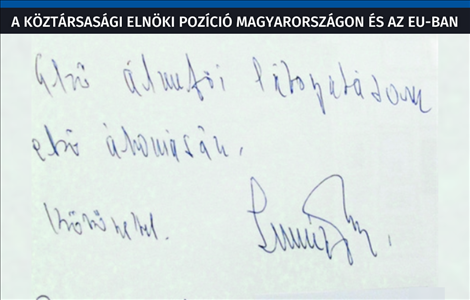 A KÖZTÁRSASÁGI ELNÖKI POZÍCIÓ MAGYARORSZÁGON ÉS AZ EU-BAN
Első államfői látogatásom
első állomásán.
Köszönettel.